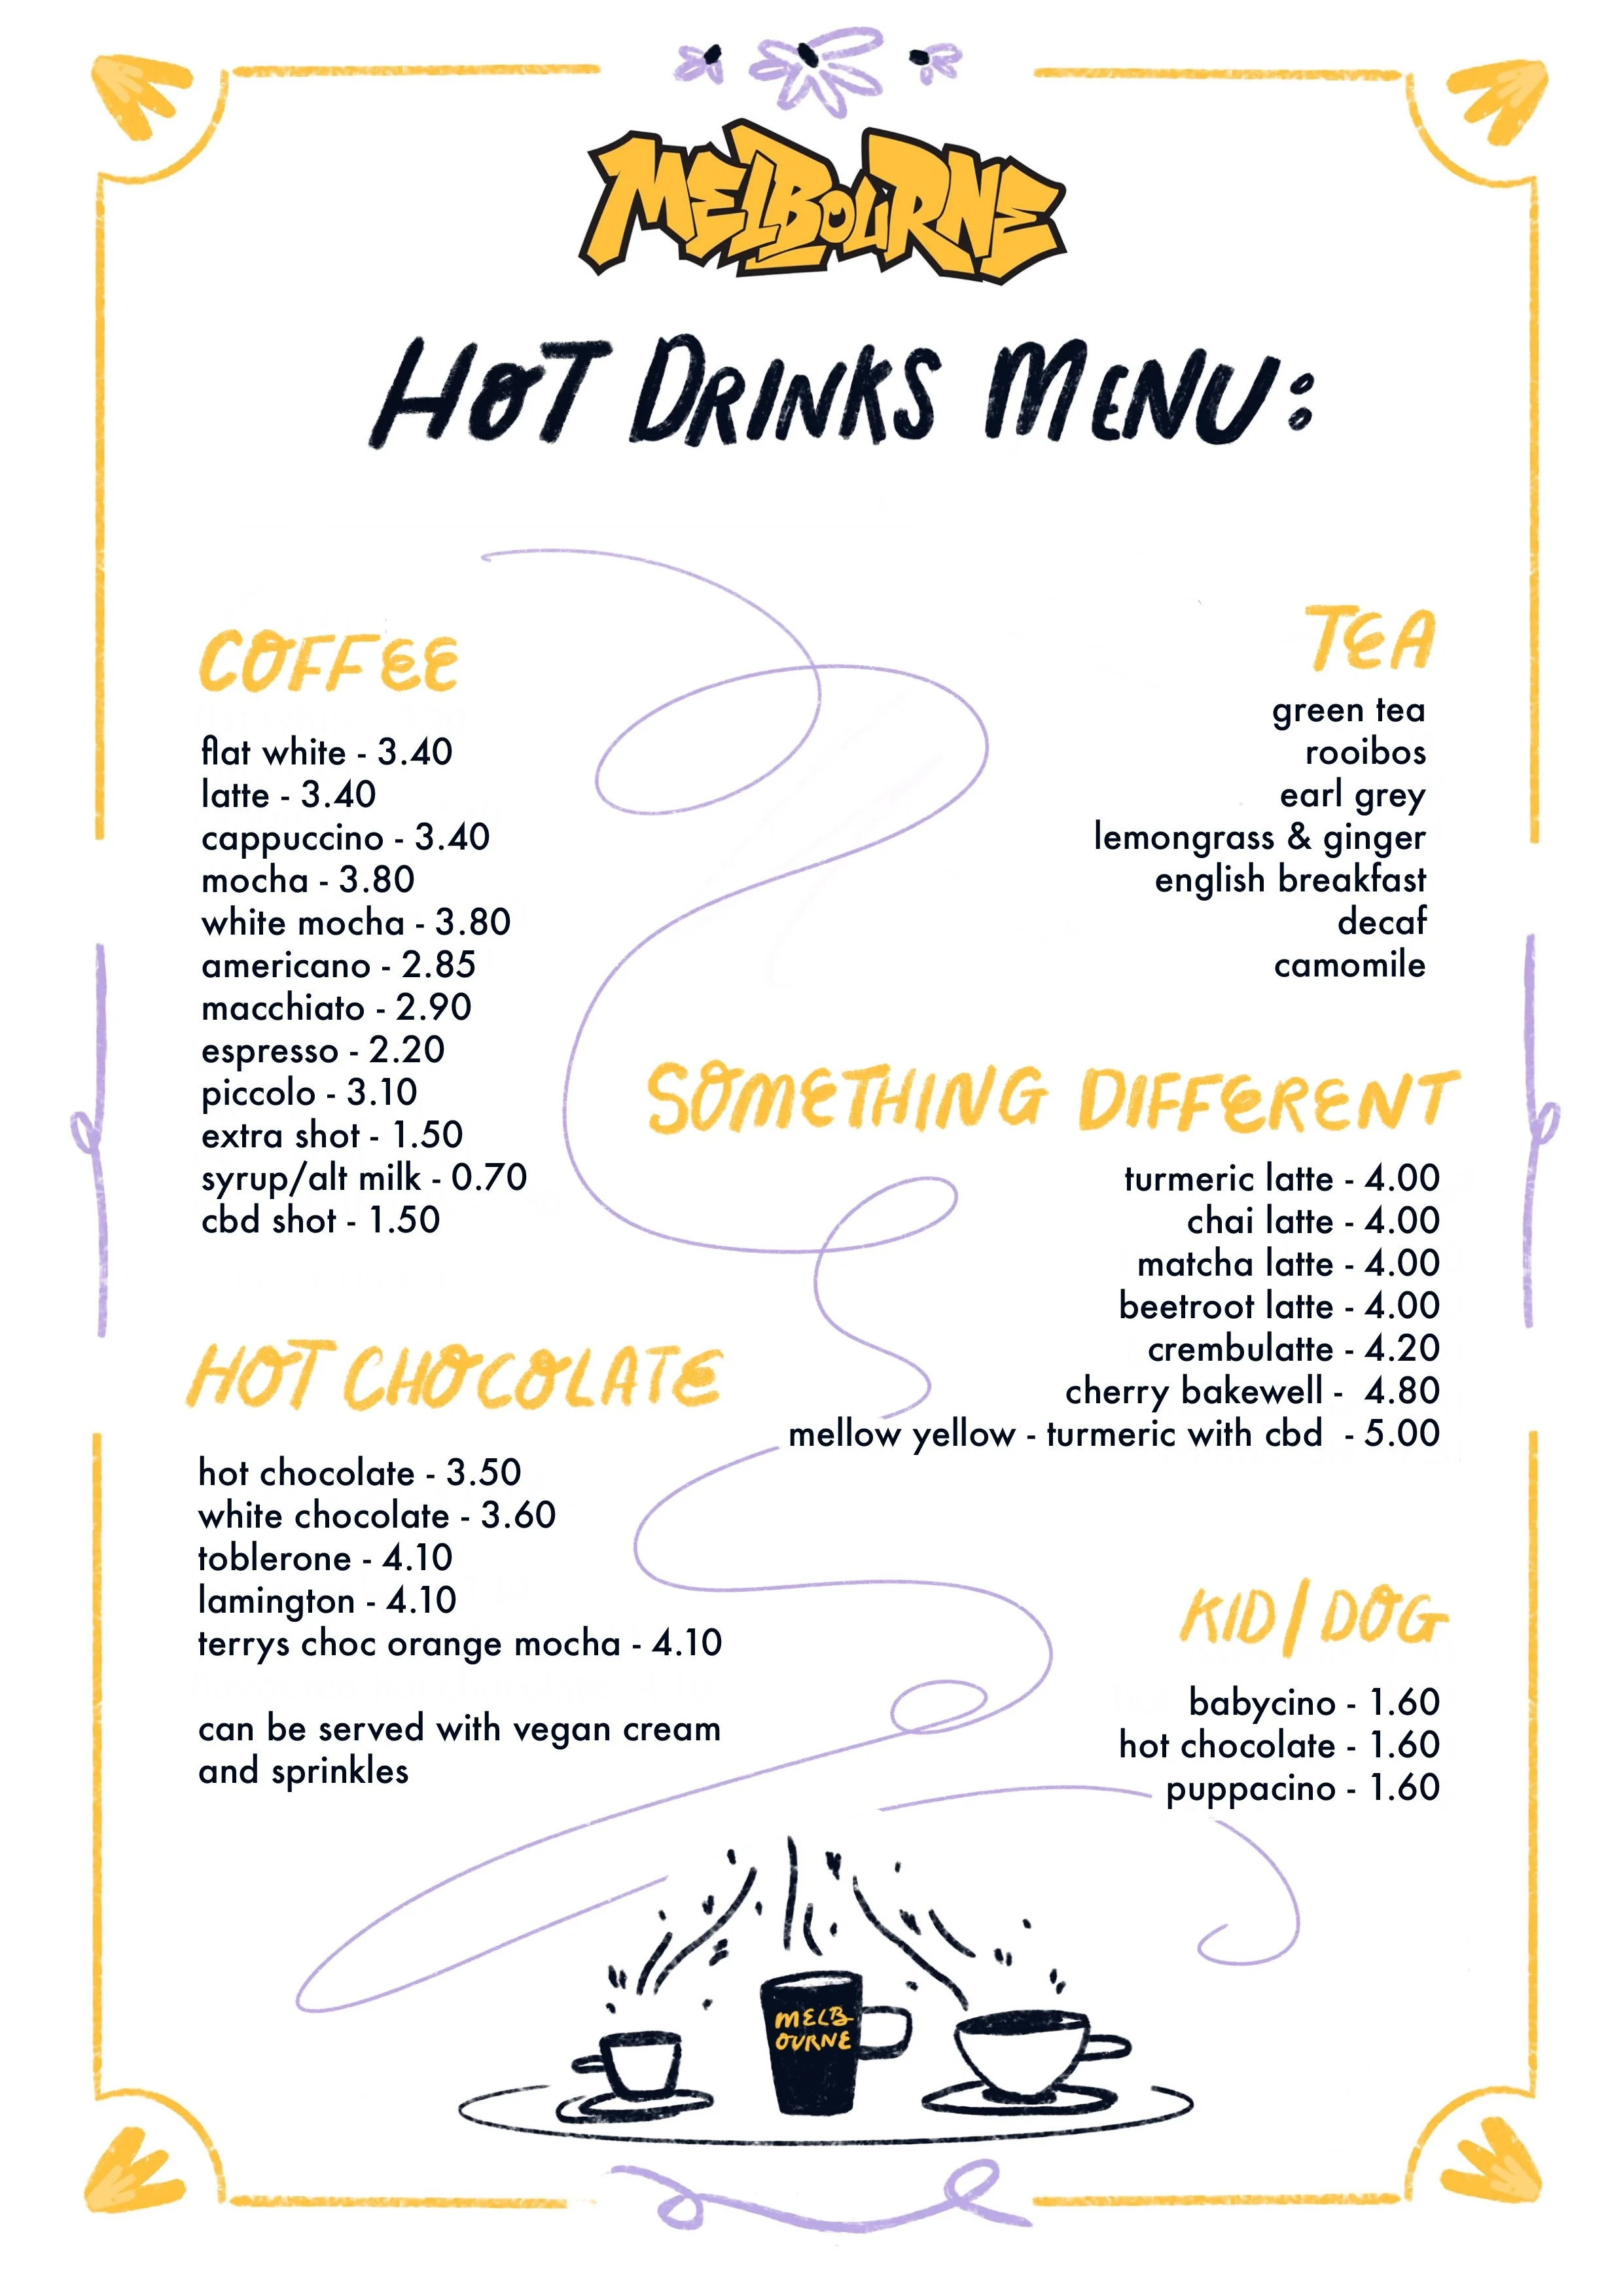 MELBOURNE
HOT DRINKS MENU:
COFFEE
flat white - 3.40
latte - 3.40
cappuccino - 3.40
mocha - 3.80
white mocha - 3.80
americano - 2.85
macchiato - 2.90
espresso - 2.20
piccolo - 3.10
extra shot - 1.50
syrup/alt milk - 0.70
cbd shot - 1.50
HOT CHOCOLATE
hot chocolate - 3.50
white chocolate - 3.60
toblerone - 4.10
lamington - 4.10
terrys choc orange mocha - 4.10
can be served with vegan cream
and sprinkles
TEA
green tea
rooibos
earl grey
lemongrass & ginger
english breakfast
decaf
camomile
SOMETHING DIFFERENT
turmeric latte - 4.00
chai latte - 4.00
matcha latte - 4.00
beetroot latte - 4.00
crembulatte - 4.20
cherry bakewell - 4.80
mellow yellow - turmeric with cbd - 5.00
KID/DOG
babycino - 1.60
hot chocolate - 1.60
puppacino - 1.60
MELB
OURNE